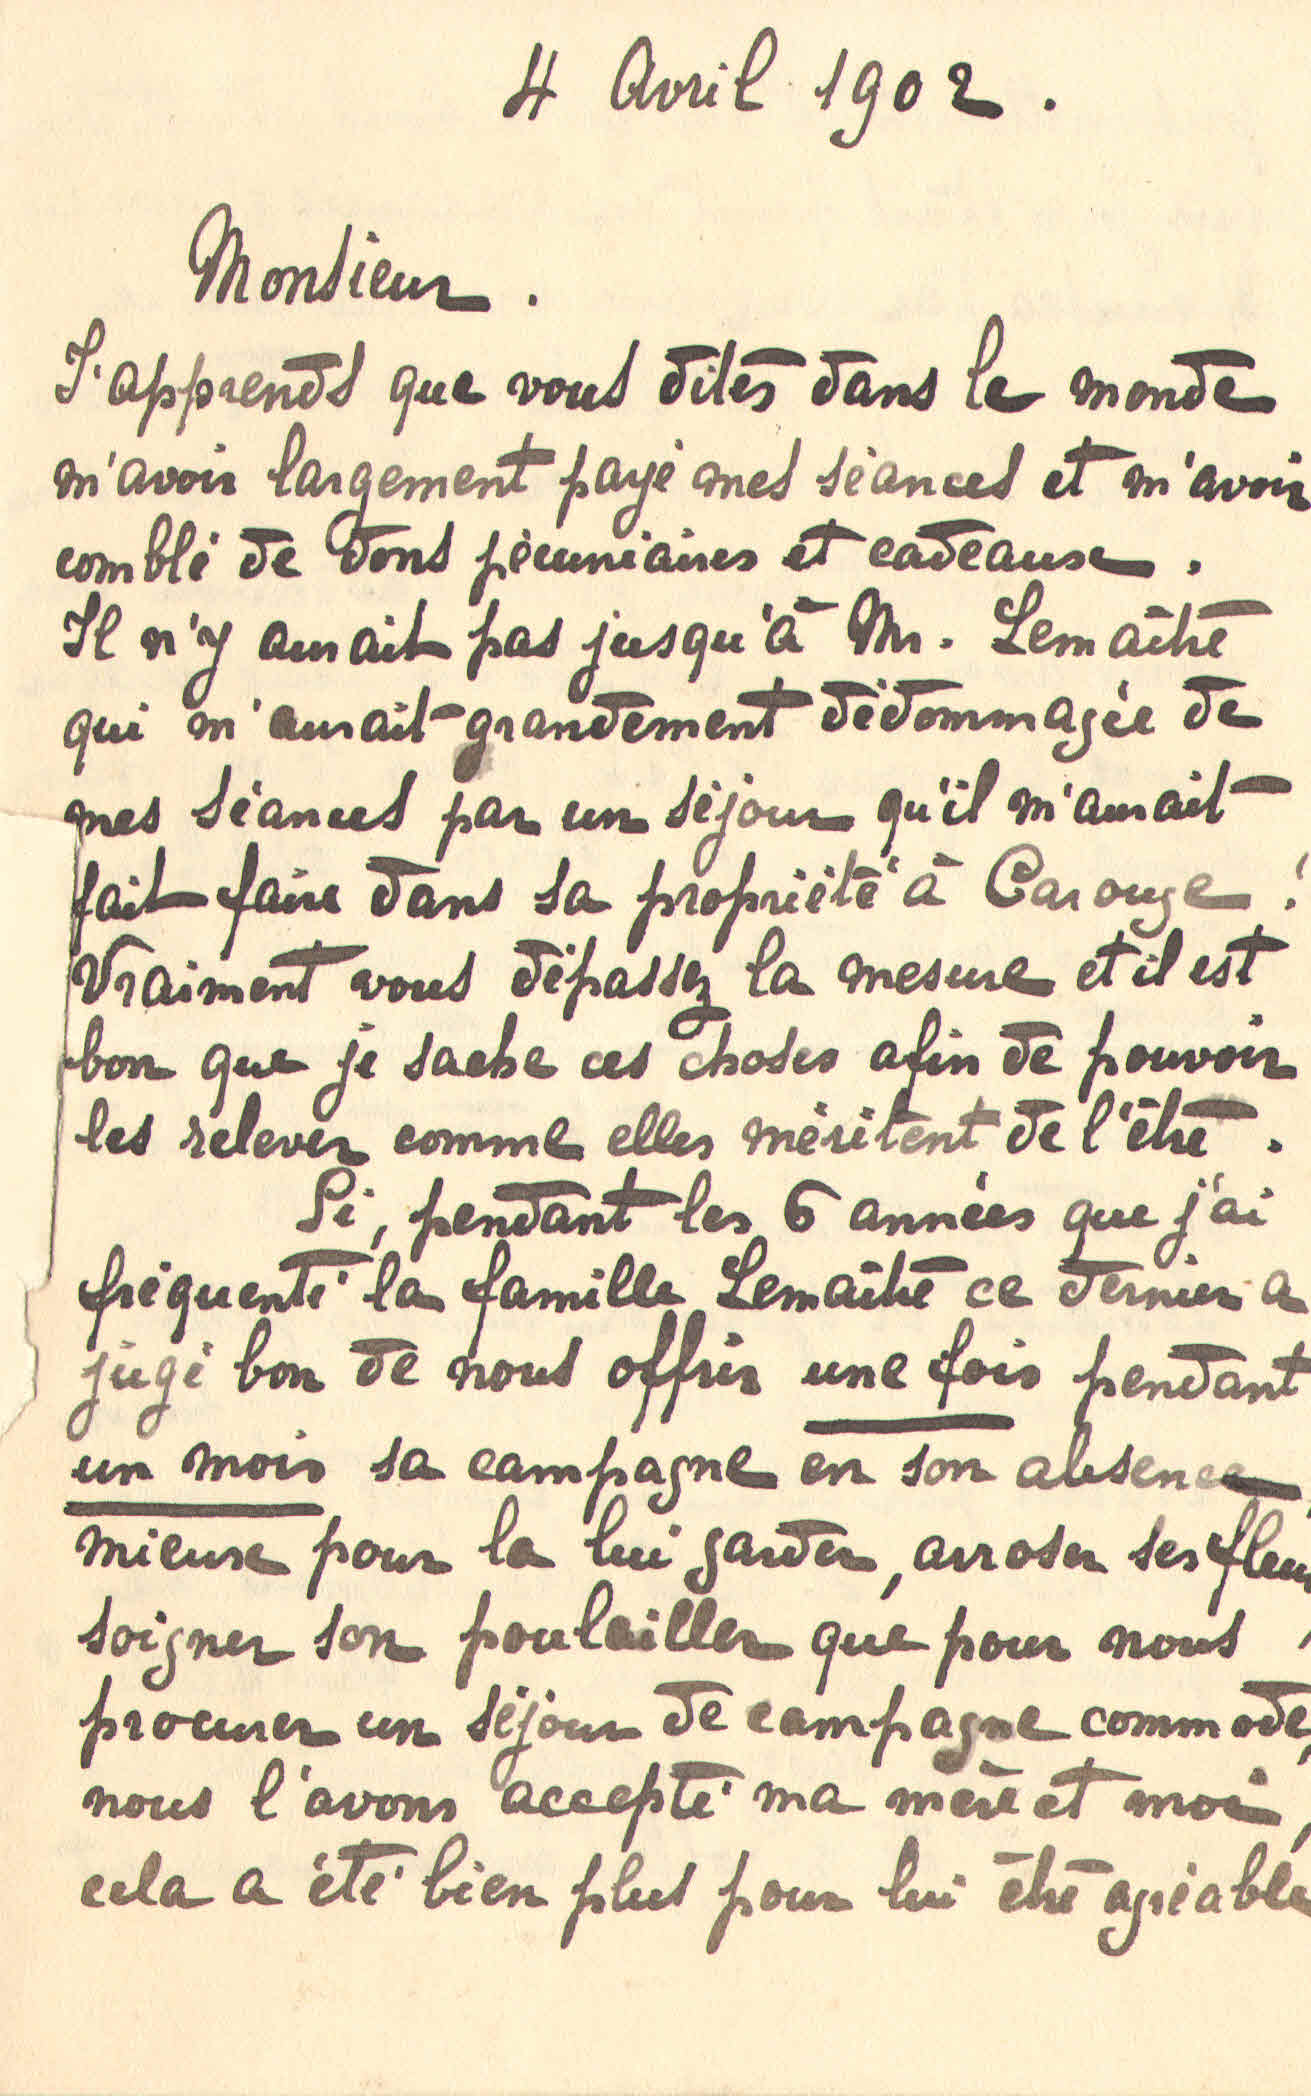 4 Avril 1902.
Monsieur.
J'apprends que vous dites dans le monde
m'avoir largement payé mes séances et m'avoir
comblé de dons pécuniaires et cadeaux.
Il n'y aurait pas jusqu'à Mr. Lemaître
qui m'aurait grandement dédommagée de
mes séances par un séjour qu'il m'aurait
fait faire dans sa propriété à Carouge !
Vraiment vous dépassez la mesure et il est
bon que je sache ces choses afin de pouvoir
les relever comme elles méritent de l'être.
Si, pendant les 6 années que j'ai
fréquenté la famille Lemaître ce dernier a
jugé bon de nous offrir une fois pendant
un mois sa campagne en son absence,
mieux pour la lui garder, arroser ses fleurs
soigner son poulailler que pour nous
procurer un séjour de campagne commode,
nous l'avons accepté ma mère et moi,
cela a été bien plus pour lui être agréable